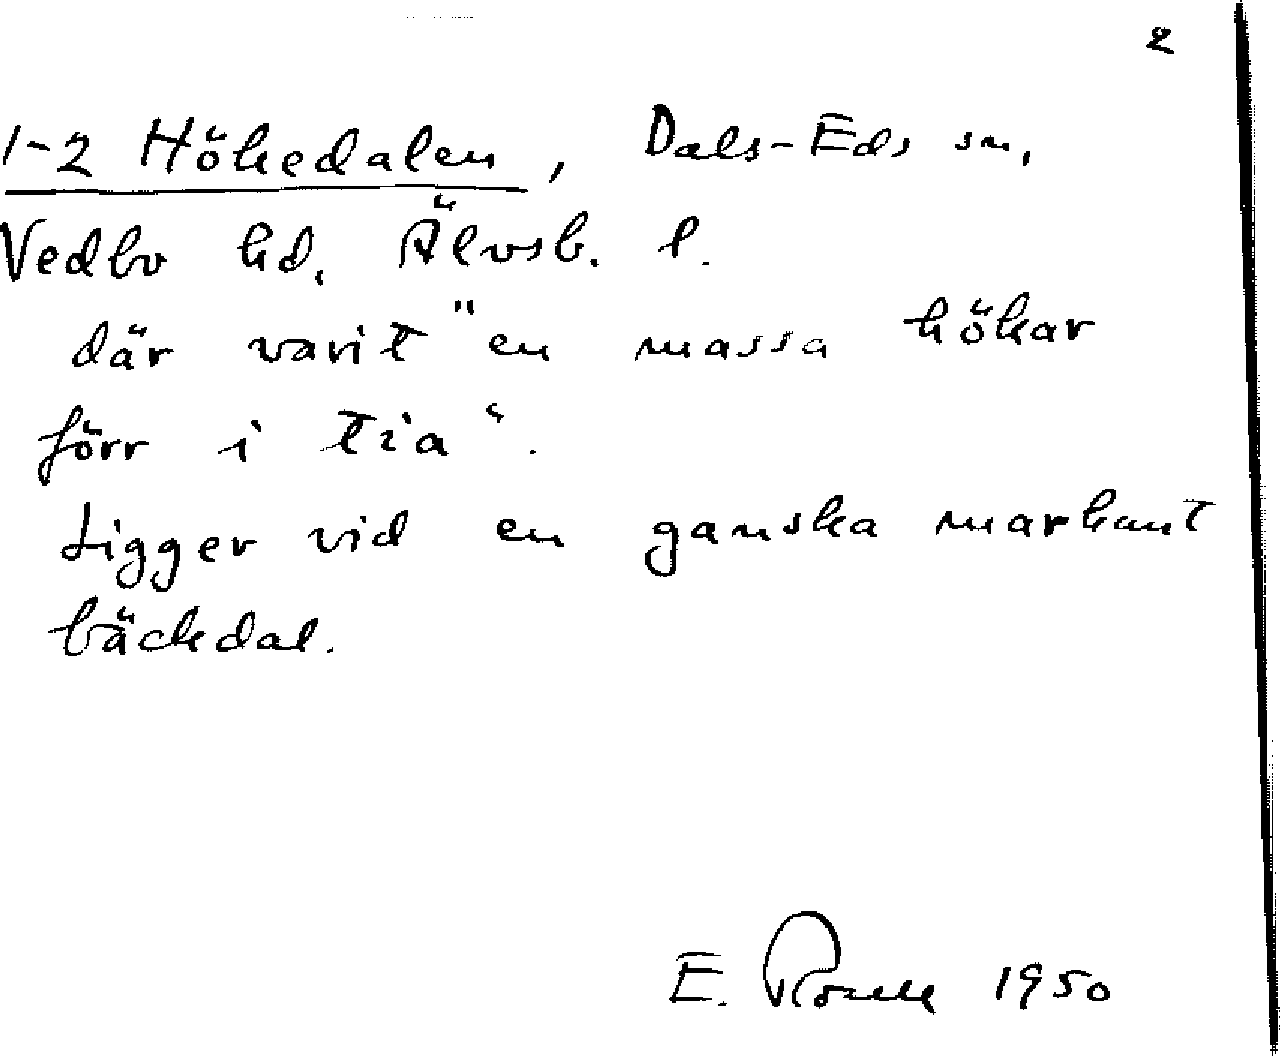 2
1-2 Hökedalen, Dals-Eds sn,
Vedbo hd, Älvsb. l.
där varit "en massa hökar
förr i tia".
Ligger vid en ganska markant
bäckdal.
E. 1950